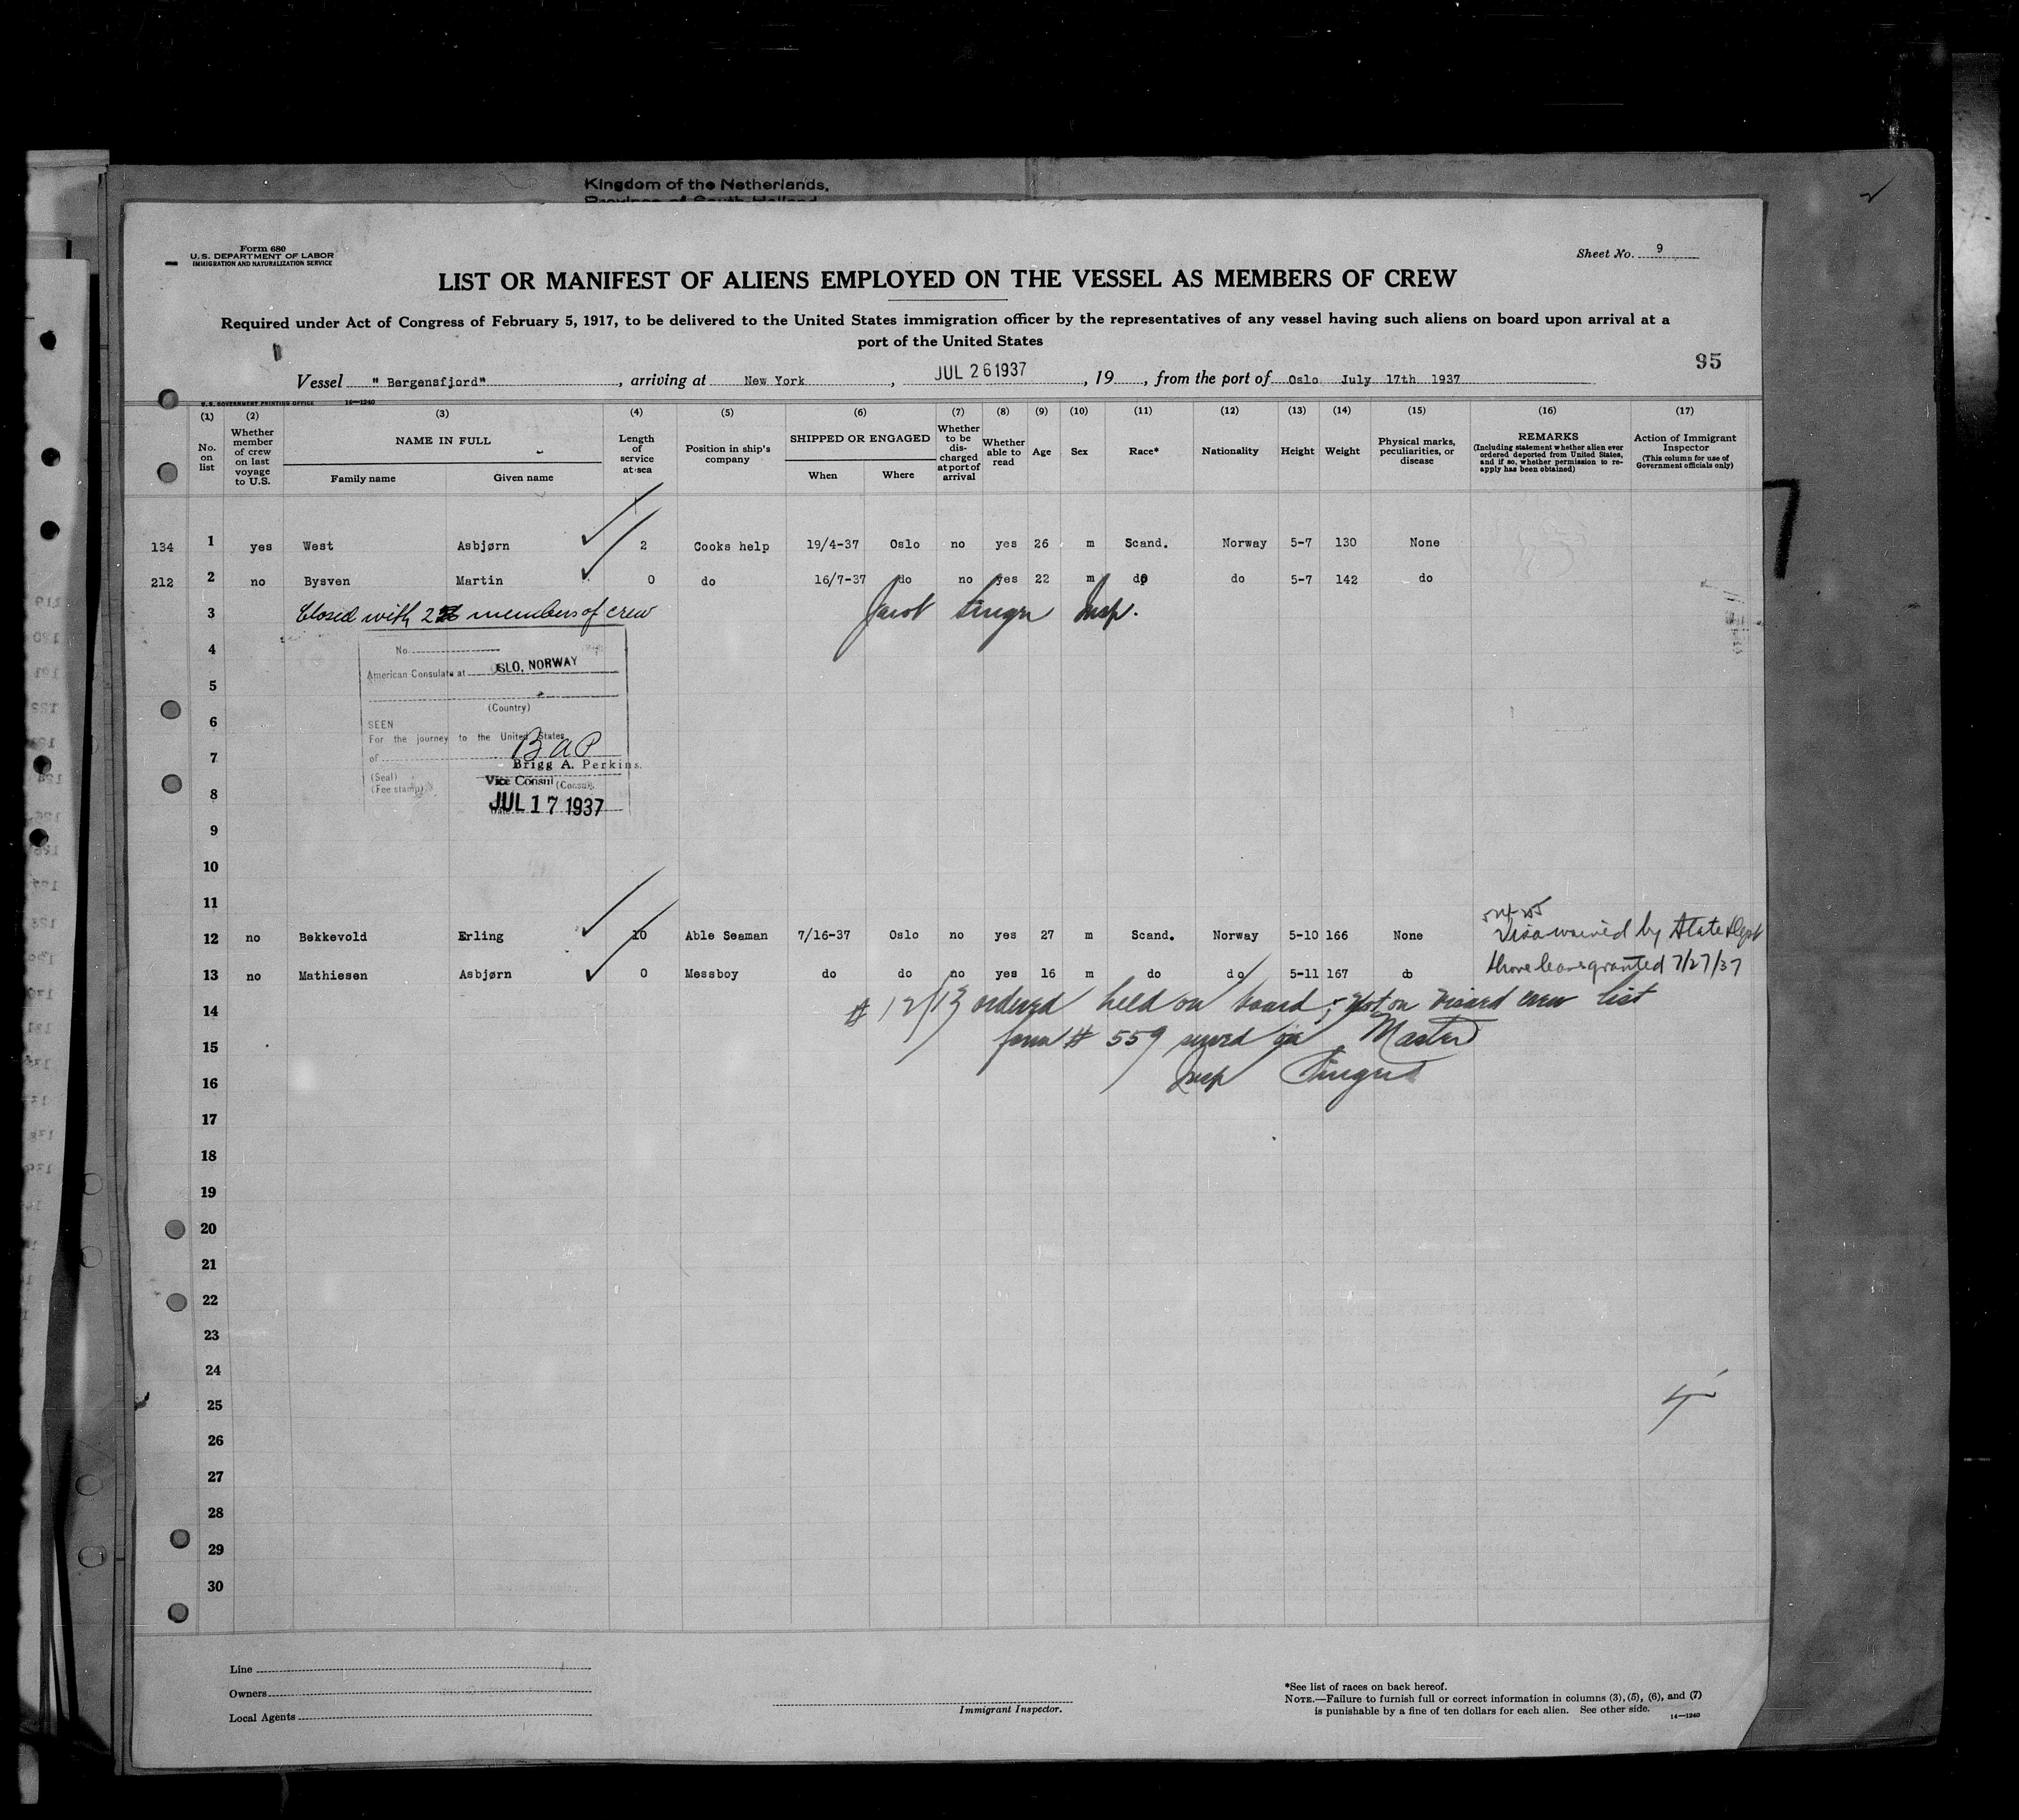 Kingdom of the Netherlands,
Form 680
U. S. DEPARTMENT OF LABOR
IMMIGRATION AND NATURALIZATION SERVICE
Sheet No. 9
LIST OR MANIFEST OF ALIENS EMPLOYED ON THE VESSEL AS MEMBERS OF CREW
Required under Act of Congress of February 5, 1917, to be delivered to the United States immigration officer by the representatives of any vessel having such aliens on board upon arrival at a
port of the United States
95
Vessel " Bergensfjord" , arriving at New York , JUL 26 1937 , 19 , from the port of Oslo July 17th 1937
U. S. GOVERNMENT PRINTING OFFICE 14—1240
(1) (2) (3) (4) (5) (6) (7) (8) (9) (10) (11) (12) (13) (14) (15) (16) (17)
No. on list
Whether member of crew on last voyage to U.S.
NAME IN FULL
Family name
Given name
Length of service at sea
Position in ship's company
SHIPPED OR ENGAGED
When
Where
Whether to be discharged at port of arrival
Whether able to read
Age
Sex
Race*
Nationality
Height
Weight
Physical marks, peculiarities, or disease
REMARKS
(Including statement whether alien ever ordered deported from United States, and if so, whether permission to re-apply has been obtained)
Action of Immigrant Inspector
(This column for use of Government officials only)
134 1 yes West Asbjørn 2 Cooks help 19/4-37 Oslo no yes 26 m Scand. Norway 5-7 130 None
212 2 no Bysven Martin 0 do 16/7-37 do no yes 22 m do do 5-7 142 do
3 Closed with members of crew Insp.
4
No.
American Consulate at OSLO, NORWAY
5
(Country)
6
SEEN
For the journey to the United States
of BAP
7
Brigg A. Perkins.
(Seal) Vice Consul (Consul)
(Fee stamp)
8
JUL 17 1937
9
10
11
12 no Bekkevold Erling 10 Able Seaman 7/16-37 Oslo no yes 27 m Scand. Norway 5-10 166 None Visa waived by State Dept
13 no Mathiesen Asbjørn 0 Messboy do do no yes 16 m do do 5-11 167 do Shore leave granted 7/27/37
14 # 12/13 ordered held on board; not on visaed crew list
15 form # 559 served on Master
16 Insp
17
18
19
20
21
22
23
24
25
26
27
28
29
30
Line
Owners
Local Agents
Immigrant Inspector.
*See list of races on back hereof.
NOTE.—Failure to furnish full or correct information in columns (3), (5), (6), and (7)
is punishable by a fine of ten dollars for each alien. See other side.
14—1240